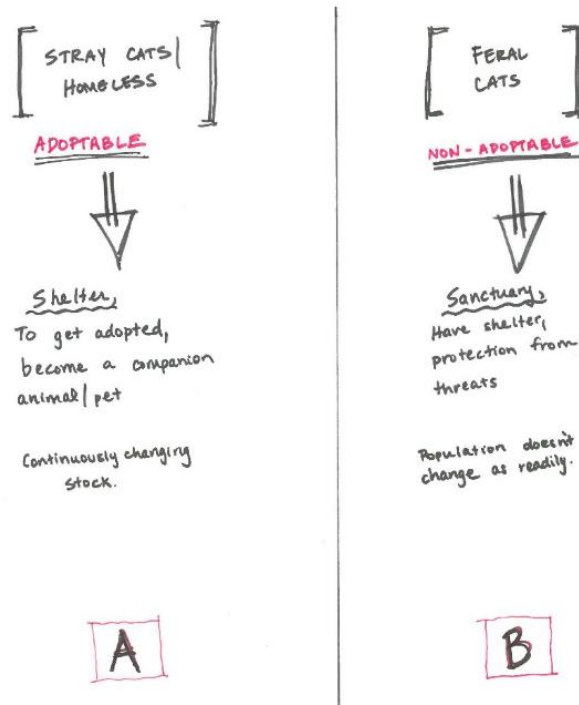 STRAY CATS|
HOMELESS
ADOPTABLE
Shelter,
To get adopted,
become a companion
animal/pet
Continuously changing
stock.
A
FERAL
CATS
NON-ADOPTABLE
Sanctuary,
Have shelter,
protection from
threats
Population doesn't
change as readily.
B